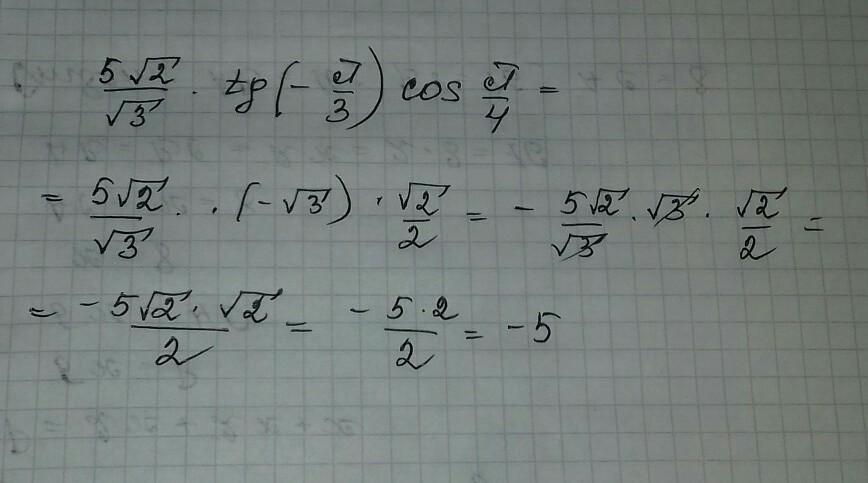 5√2/√3 · tg(−π/3) cos π/4 =
= 5√2/√3 · · (−√3) · √2/2 = − 5√2/√3 · √3 · √2/2 =
= −5√2 · √2/2 = −5·2/2 = −5